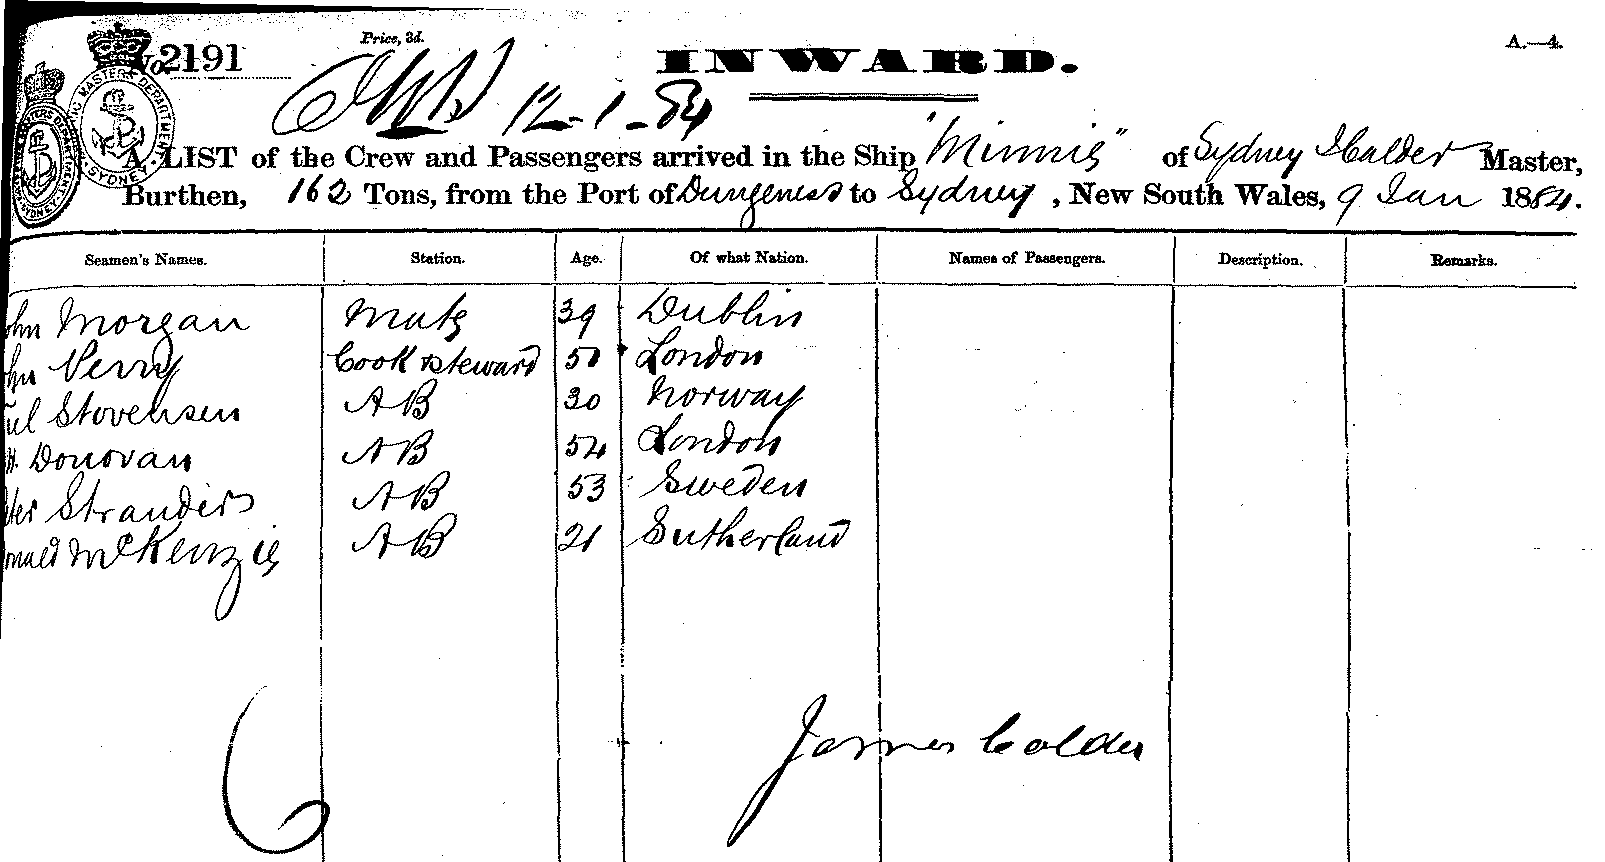 Price, 3d.
A.—4.
No. 2191
INWARD.
12-1-84
A LIST of the Crew and Passengers arrived in the Ship "Minnie" of Sydney J Calder Master,
Burthen, 162 Tons, from the Port of Dungeness to Sydney, New South Wales, 9 Jan 1884.
Seamen's Names. Station. Age. Of what Nation. Names of Passengers. Description. Remarks.
ohn Morgan Mate 39 Dublin
ohn Perry Cook & steward 50 London
Stovensen AB 30 Norway
Donovan AB 54 London
Stranders AB 53 Sweden
onald McKenzie AB 21 Sutherland
6
James Calder
SYDNEY